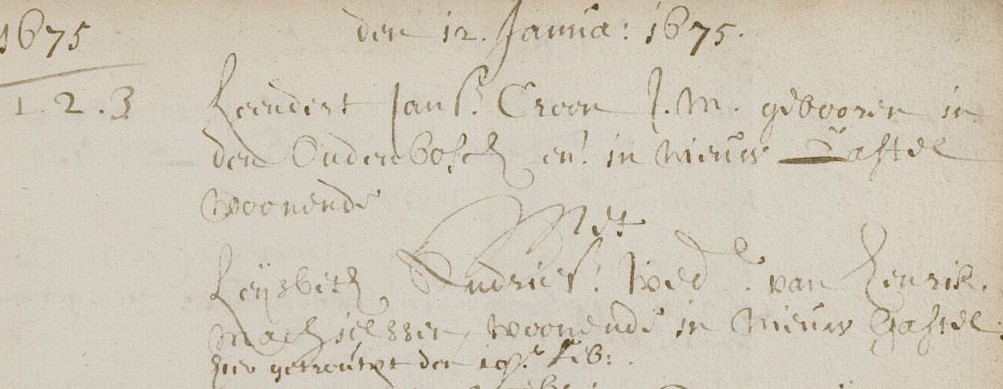 1675
den 12. Janua: 1675.
1.2.3
Leendert Jans. Croon J.M. gebooren in
den Oudenbosch en. in nieuw Gastel
woonende
Met
Leijsbeth Andries. Wed.e van Henrik.
Machielssen, woonende in Nieuw Gastel.
hier getrouwt den Feb: